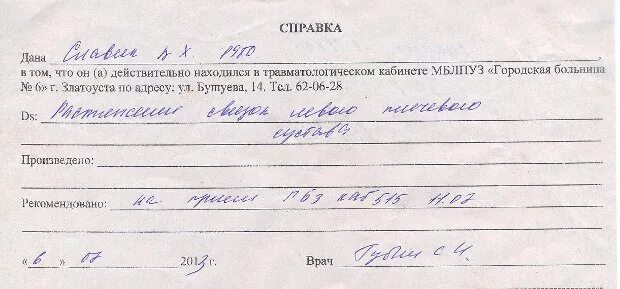 СПРАВКА
Дана Славин В Х. 1980
в том, что он (а) действительно находился в травматологическом кабинете МБЛПУЗ «Городская больница
№ 6» г. Златоуста по адресу: ул. Бушуева, 14. Тел. 62-06-28
Ds: Растяжение связок левого плечевого
сустава
Произведено:
Рекомендовано: на прием ГБ3 каб 515 11.07
«6» 07 2013г. Врач Губин С И.